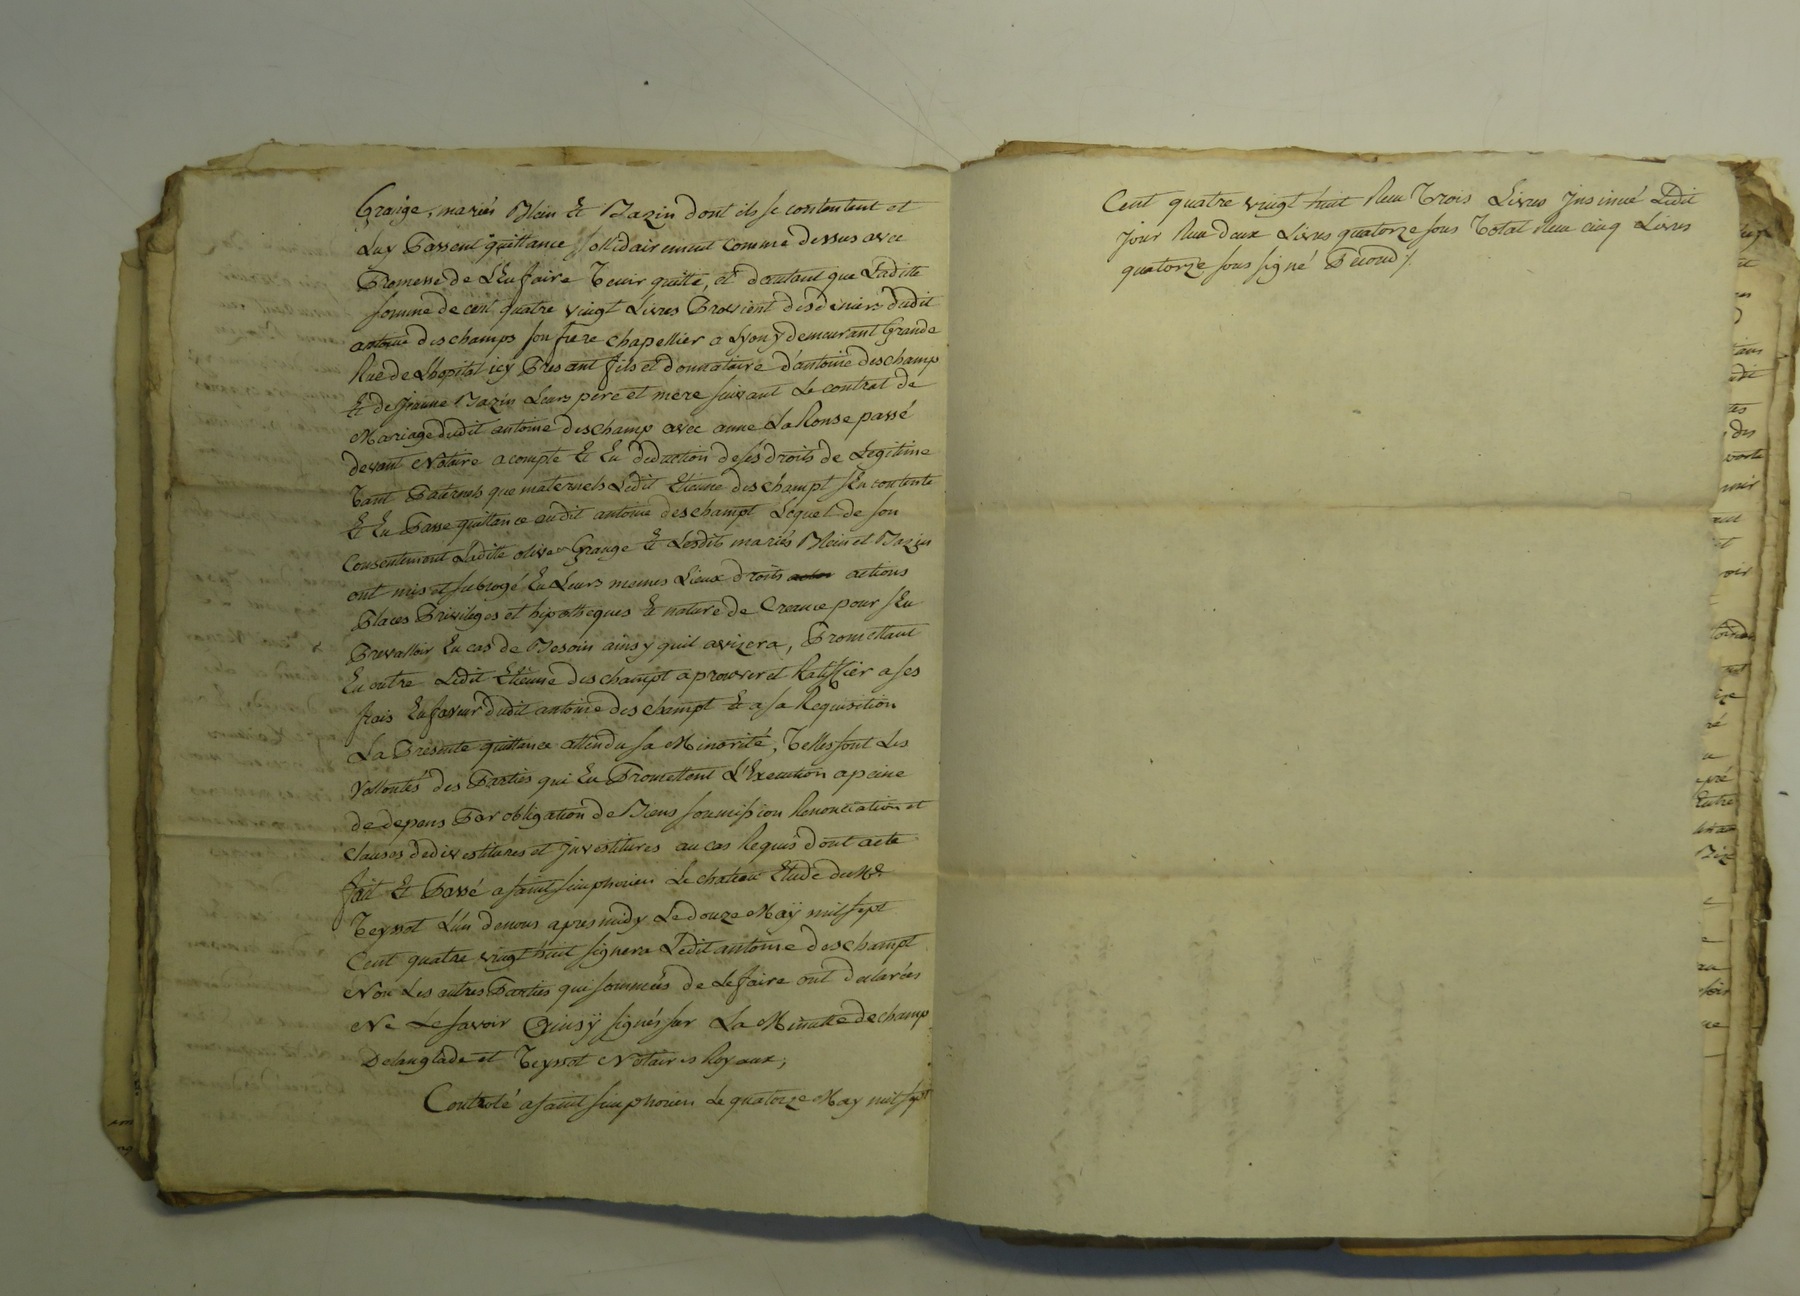 Grange, mariés Blein Et Bazin dont ils se contentent et
Luy Passent quittance sollidairement comme dessus avec
Promesse de L'En faire Tenir quitte, et d'autant que Laditte
somme de cent quatre vingt Livres Provient des deniers dudit
antoine deschamps son frere chapellier a Lyon y demeurant Grande
Rue de L'hopital icy Present fils et donnataire d'antoine deschamp
Et de Jeanne Bazin Leurs pere et mere suivant Le contrat de
Mariage dudit antoine deschamp avec anne LaRonse passé
devant Notaire a compte Et En deduction de ses droits de Legitime
Tant Paternels que maternels Ledit Etienne deschampt s'En contente
Et En Passe quittance audit antoine deschampt Lequel de son
Consentement Ladite olive Grange Et Lesdits mariés Blein et Bazin
ont mis et subrogé En Leurs memes Lieux droits actions
Places Privileges et hipotheques Et nature de Creance pour s'En
Prevalloir En cas de Besoin ainsy quil avizera, Promettant
En outre Ledit Etienne deschampt aprouver et Ratiffier a ses
frais En faveur dudit antoine deschampt Et a sa Requisition
La Presente quittance attendu sa Minorité, Telles sont Les
Vollontés des Parties qui En Promettent L'Execution a peine
de depens Par obligation de Biens soumission Renonciation et
clauses de divestitures et Investitures au cas Requis dont acte
fait Et Passé a saint simphorien Le chateau Etude du Me
Teyssot L'un de nous apres midy Le douze Maÿ mil sept
Cent quatre vingt huit signera Ledit antoine deschampt
Non Les autres Parties qui sommées de Le faire ont declarées
Ne Le savoir Ainsÿ signés sur La Minutte dechamp
Delanglade et Teyssot Notaires Royaux,
Controlé a saint simphorien Le quatorze May mil sept
Cent quatre vingt huit Reçu Trois Livres Insinué Ledit
Jour Reçu deux Livres quatorze sous Total Reçu cinq Livres
quatorze sous signé